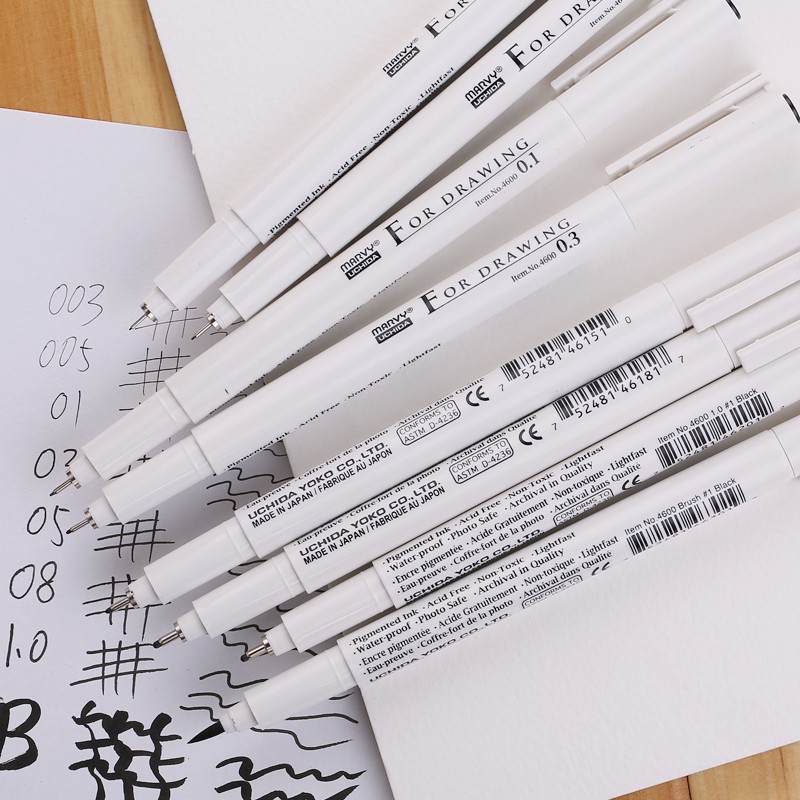 MARVY®
UCHIDA
FOR DRA
MARVY®
UCHIDA
FOR DRAW
Item.No.
·Pigmented Ink ·Acid Free ·Non-Toxic ·Lightfast
MARVY®
UCHIDA
FOR DRAWING
Item.No.4600 0.1
MARVY®
UCHIDA
FOR DRAWING
Item.No.4600 0.3
·Acid Free ·Non-Toxic ·Lightfast
·Eau-preuve ·Coffre-fort de la photo ·Archival dans Qualité
UCHIDA YOKO CO.,LTD.
MADE IN JAPAN / FABRIQUE AU JAPON
CONFORMS TO
ASTM D-4236
CE
7 52481 46151 0
·Eau-preuve ·Coffre-fort de la photo ·Archival dans Qualité
UCHIDA YOKO CO.,LTD.
MADE IN JAPAN / FABRIQUE AU JAPON
CONFORMS TO
ASTM D-4236
CE
7 52481 46181 7
·Pigmented Ink ·Acid Free ·Non Toxic ·Lightfast
·Water-proof ·Photo Safe ·Archival in Quality
·Encre pigmentée ·Acide Gratuitement ·Non-toxique ·Lightfast
·Eau-preuve ·Coffre-fort de la photo ·Archival dans Qualité
UCHIDA YOKO CO.,LTD.
CONFORMS TO
CE
Item No.4600 1.0 #1 Black
·Pigmented Ink ·Acid Free ·Non Toxic ·Lightfast
·Water-proof ·Photo Safe ·Archival in Quality
·Encre pigmentée ·Acide Gratuitement ·Non-toxique ·Lightfast
·Eau-preuve ·Coffre-fort de la photo ·Archival dans Qualité
UCHIDA YOKO CO.,LTD.
CONFORMS TO
CE
Item No.4600 Brush #1 Black
003
005
01
05
08
1.0
B